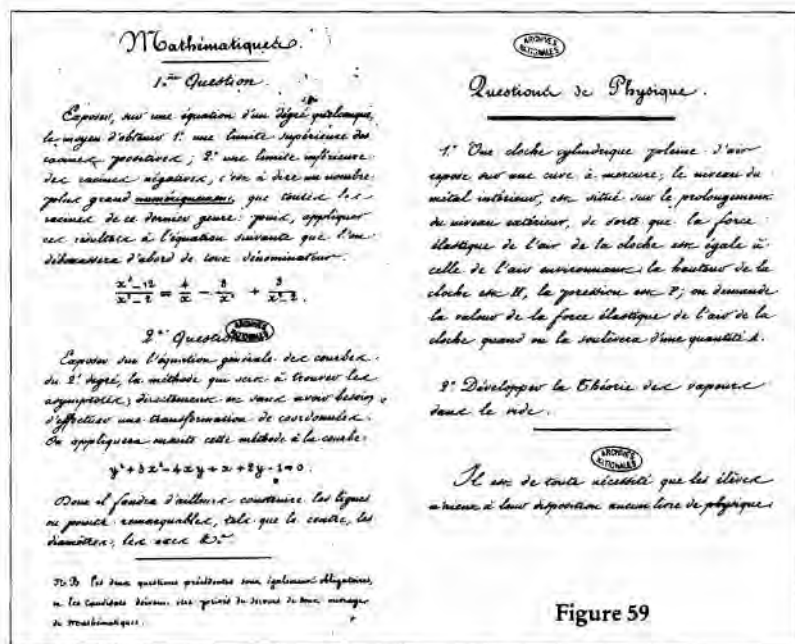 Mathématiques.
1.ère Question
Exposer, sur une équation d'un dégré quelconque,
le moyen d'obtenir 1.° une limite supérieure des
racines positives ; 2.° une limite inférieure
des racines négatives, c'est à dire un nombre
plus grand numériquement, que toutes les
racines de ce dernier genre : puis, appliquer
ces résultats à l'équation suivante que l'on
débarrassera d'abord de tout dénominateur.
2.e Question
ARCHIVES NATIONALES
Exposer sur l'équation générale des courbes
du 2.e degré, la méthode qui sert à trouver les
asymptotes, directement et sans avoir besoin
d'effectuer une transformation de coordonnées.
On appliquera ensuite cette méthode à la courbe.
y² + 3x² - 4xy + x + 2y - 1 = 0.
Dont il faudra d'ailleurs construire les lignes
et points remarquables, tels que le centre, les
diamètres, les axes &.a
N. B. Les deux questions précédentes sont également obligatoires,
et les candidats devront être privés du secours de tout ouvrage
de mathématiques.
ARCHIVES
NATIONALES
Questions de Physique.
1.° Une cloche cylindrique pleine d'air
repose sur une cuve à mercure; le niveau du
métal intérieur, est situé sur le prolongement
du niveau extérieur, de sorte que la force
élastique de l'air de la cloche est égale à
celle de l'air environnant: la hauteur de la
cloche est H, la pression est P; on demande
la valeur de la force élastique de l'air de la
cloche quand on la soulèvera d'une quantité
2.° Développer la Théorie des vapeurs
dans le vide.
ARCHIVES
NATIONALES
Il est de toute nécessité que les élèves
n'aient à leur disposition aucun livre de physique.
Figure 59